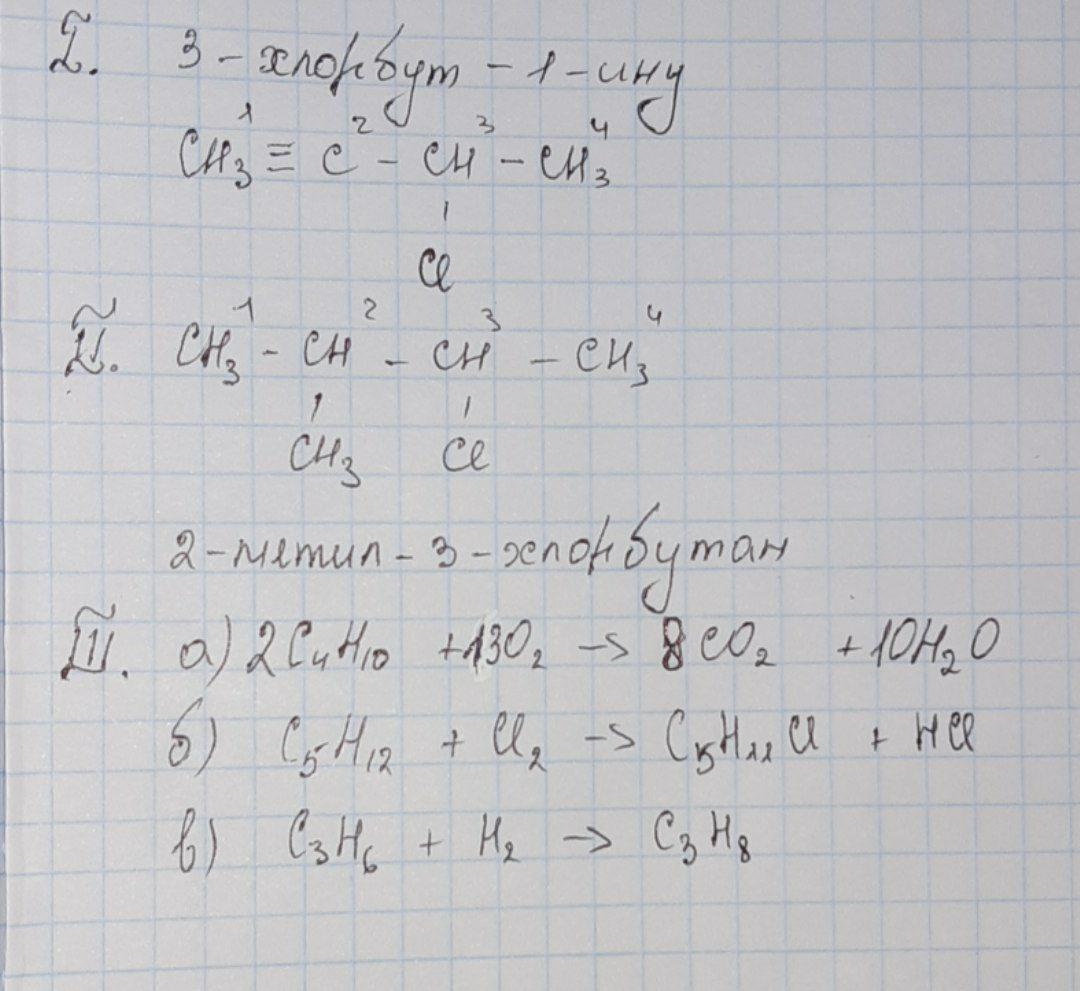 I. 3-хлорбут-1-ину
1 2 3 4
CH₃ ≡ C - CH - CH₃
Cl
1 2 3 4
II. CH₃ - CH - CH - CH₃
CH₃ Cl
2-метил-3-хлорбутан
III. а) 2C₄H₁₀ + 13O₂ → 8CO₂ + 10H₂O
б) C₅H₁₂ + Cl₂ → C₅H₁₁Cl + HCl
в) C₃H₆ + H₂ → C₃H₈